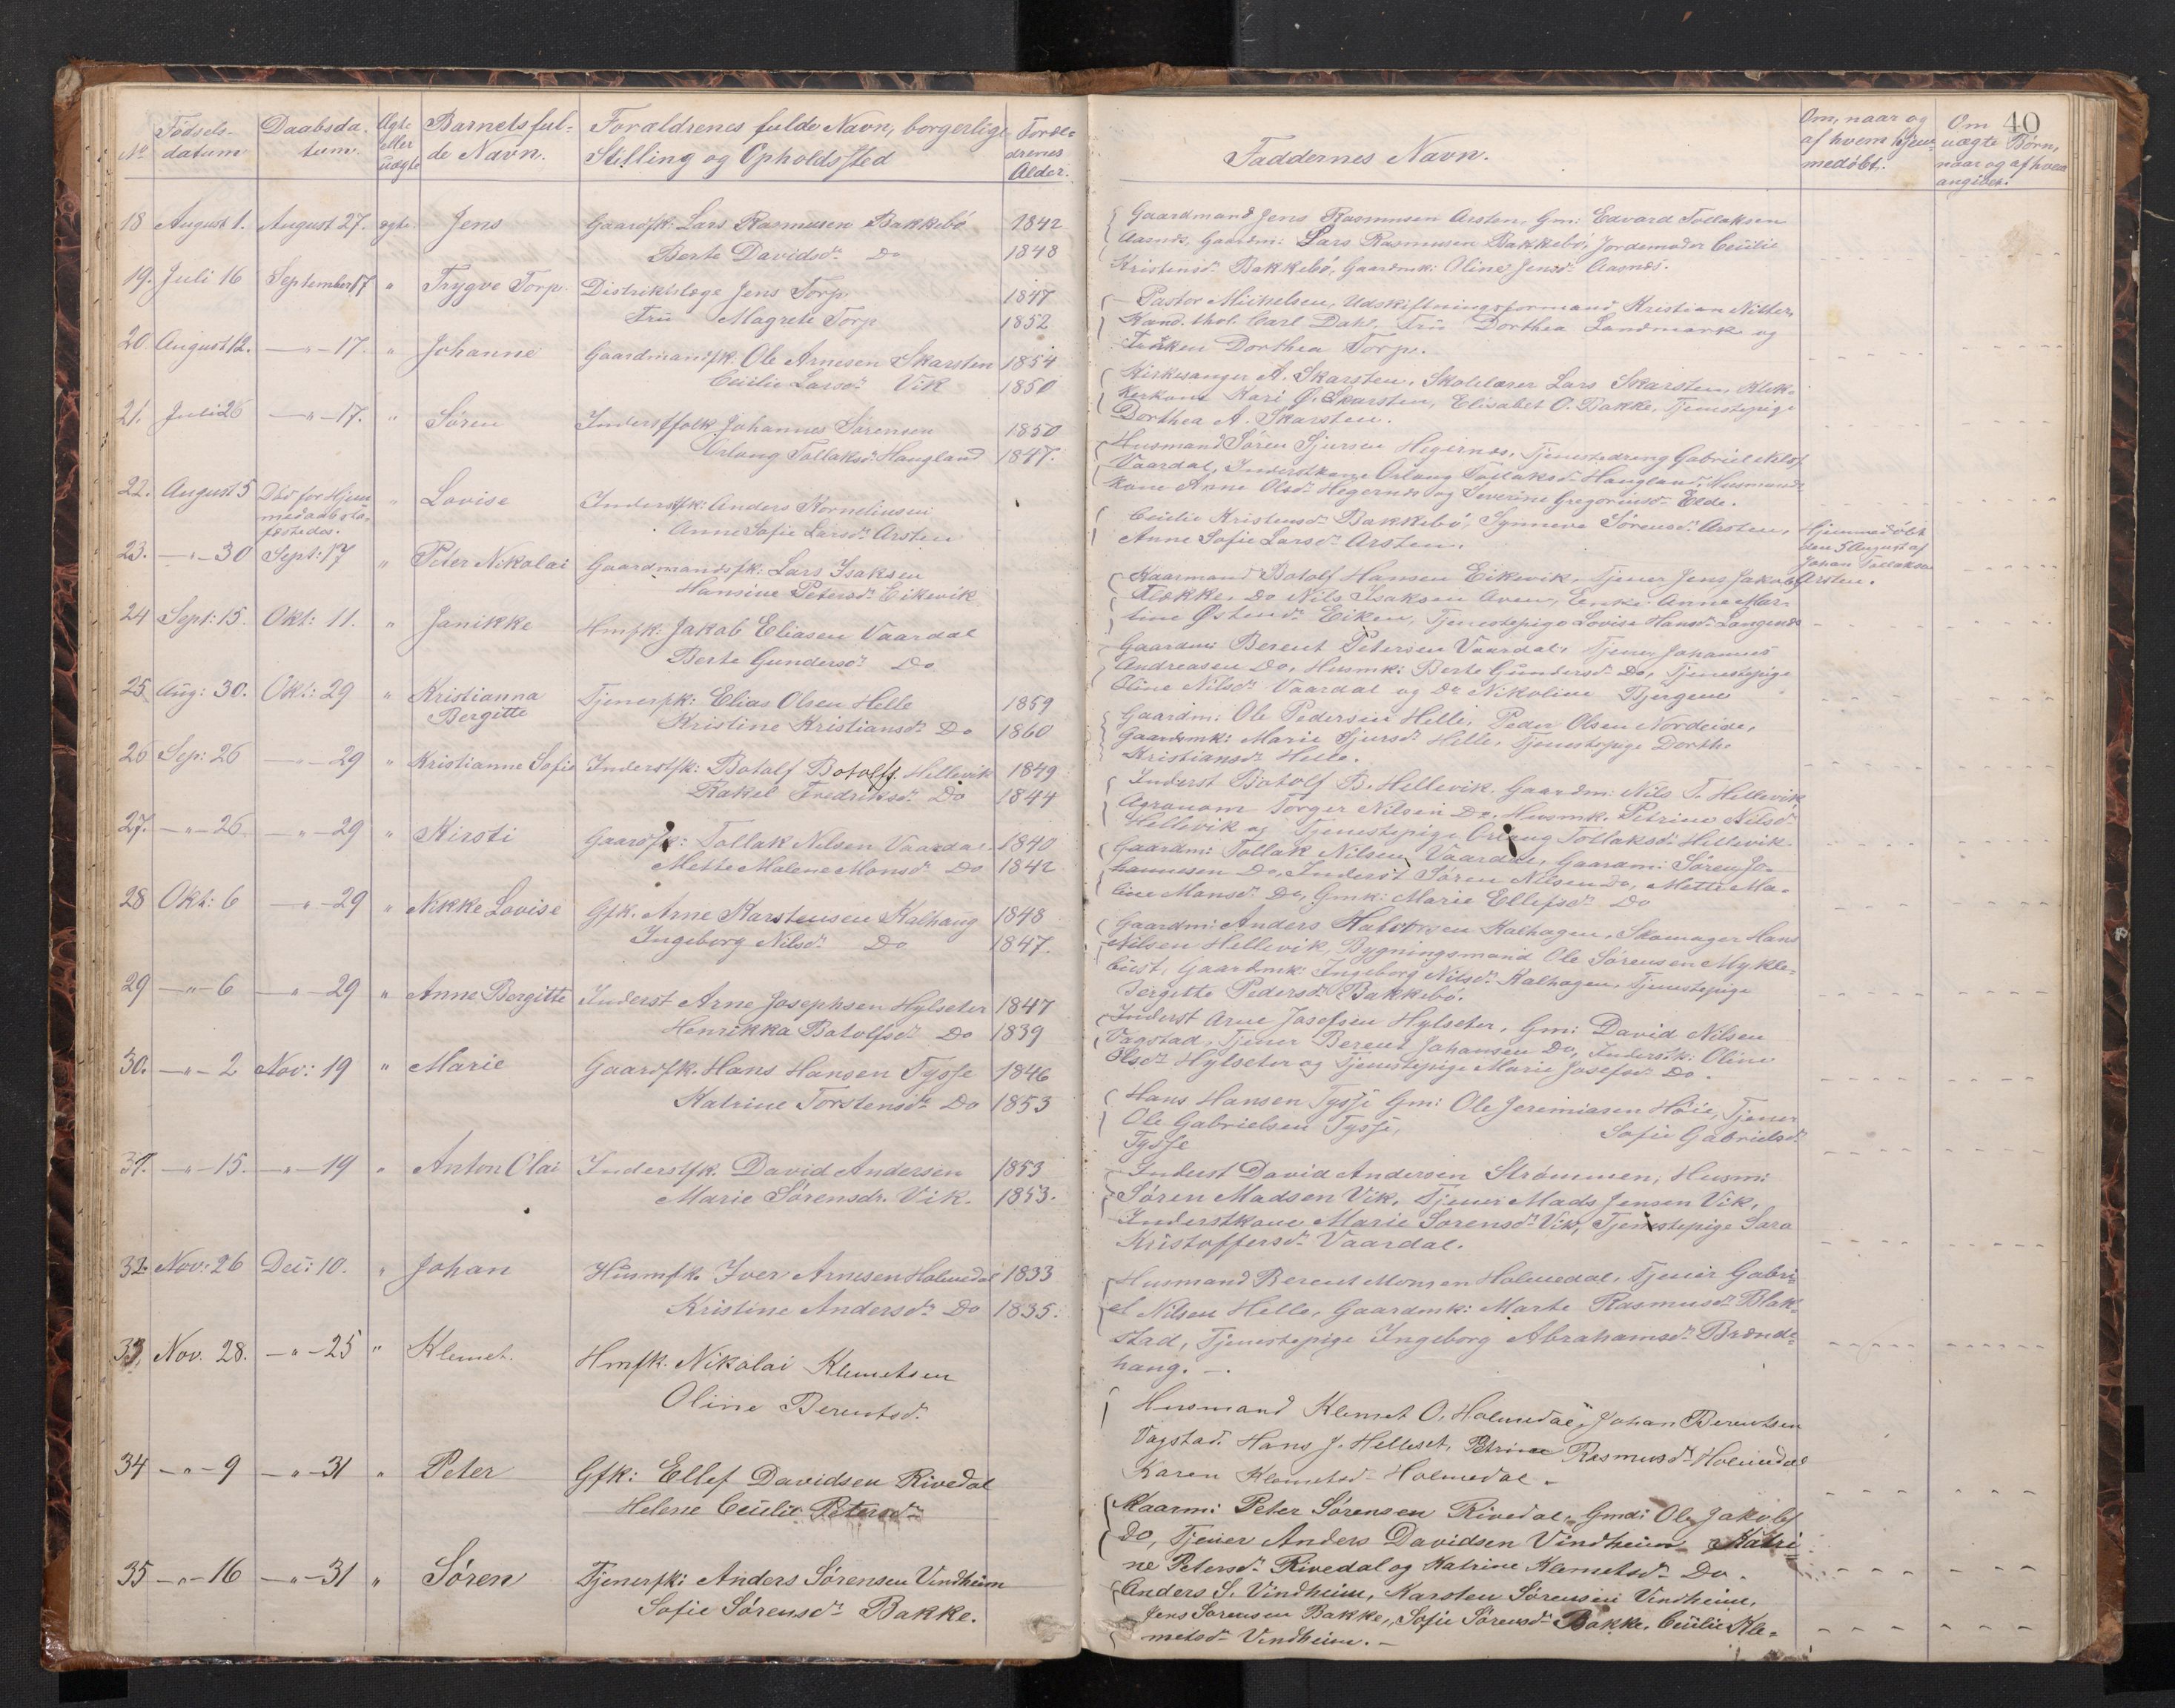 No Fødsels-datum Daabsda-tum. Ægte eller uægte Barnets ful-de Navn. Forældrenes fulde Navn, borgerlige Stilling og Opholdssted Foræl-drenes Alder.
18 August 1. August 27. ægte Jens Gaardfk: Lars Rasmusen Bakkebö 1842
Berte Davidsdr Do 1848
19. Juli 16 September 17 " Trygve Torp. Distriktslæge Jens Torp 1847
Fru Magrete Torp 1852
20. August 12. —"—17. " Johanne Gaardmandsfk. Ole Arnesen Skarsten 1854
Cecilie Larsdr Vik 1850
21. Juli 26 —"—17. " Søren Inderstfolk Johannes Sørensen 1850
Orlaug Tollaksdr Haugland 1847.
22. August 5 Død før Hjem-medaab sta-fæstedes. " Lovise Inderstfk: Anders Korneliusen
Anne Sofie Larsdr Arsten
23. —"—30 Sept: 17 " Peter Nikolai Gaardmandsfk: Lars Isaksen
Hansine Petersdr Eikevik
24 Sept: 15. Okt: 11. " Janikke Hmfk: Jakob Eliasen Vaardal
Berte Gundersdr Do
25. Aug: 30. Okt: 29 " Kristianna Bergitte Tjenerfk: Elias Olsen Helle 1859
Kristine Kristiansdr Do 1860
26 Sep: 26 —"—29 " Kristianne Sofie Inderstfk: Botolf Botolfs. Hellevik 1849
Rakel Fredriksdr Do 1844
27. —"—26 —"—29 " Kirsti Gaardfk: Tollak Nilsen Vaardal 1840
Mette Malene Monsdr Do 1842
28 Okt: 6 —"—29 " Nikke Lovise Gfk. Arne Karstensen Kalhaug 1848
Ingeborg Nilsdr Do 1847.
29 —"—6 —"—29 " Anne Bergitte Inderst Arne Josephsen Hylseter 1847
Henrikka Botolfsdr Do 1839
30. —"—2 Nov: 19 " Marie Gaardfk. Hans Hansen Tysse 1846
Katrine Torstensdr Do 1853
31. —"—15. —"—19 " Anton Olai Inderstfk. David Andersen 1853
Marie Sørensdr. Vik. 1853.
32. Nov: 26 Dec: 10. " Johan Husmfk. Iver Arnesen Holmedal 1833
Kristine Andersdr Do 1835.
33. Nov. 28. —"—25 " Klemet. Hmfk. Nikolai Klemetsen
Oline Berentsdr
34 —"—9 —"—31 " Peter Gfk: Ellef Davidsen Rivedal
Helene Cecilie Petersdr
35 —"—16 —"—31 " Søren Tjenerfk: Anders Sørensen Vindheim
Sofie Sørensdr Bakke.
Faddernes Navn. Om, naar og af hvem hjem-medøbt. Om uægte Børn, naar og af hvem angivet. 40
Gaardmand Jens Rasmusen Arsten, Gm: Edvard Tollaksen
Aasnds, Gaardm: Lars Rasmusen Bakkebö, Jordemoder Cecilie
Kristensdr Bakkebö, Gaardmk: Oline Jensdr Aasnds.
Pastor Mikkelsen, Udskiftningsformand Kristian Nitter,
Kand. thol. Carl Dahl, Fru Dorthea Landmark og
Frøken Dorthea Torp.
Kirkesanger A. Skarsten, Skolelærer Lars Skarsten, Klok-
kerkone Kari Ø. Skarsten, Elisabet O. Bakke, Tjenestepige
Dorthea A. Skarsten.
Husmand Søren Sjursen Hegernes, Tjenestedreng Gabriel Nilss
Vaardal, Inderstkone Orlaug Tollaksdr Haugland, Husmands-
kone Anne Olsdr Hegernds og Severine Gregoriusdr Elde.
Cecilie Kristensdr Bakkebö, Synneve Sørensdr Arsten,
Anne Sofie Larsdr Arsten.
Hjemmedøbt
den 5 August af
Johan Tollaksen
Arsten.
Kaarmand Botolf Hansen Eikevik, Tjener Jens Jakobs
Flekke, Do Nils Isaksen Aven, Enke Anne Mar-
tine Østensdr Eiken, Tjenestepige Lovise Hansdr Langends
Gaardm: Berent Petersen Vaardal, Tjener Johannes
Andreasen Do, Husmk: Berte Gundersdr Do, Tjenestepige
Oline Nilsdr Vaardal og Do Nikoline Bjergene
Gaardm: Ole Pedersen Helle, Peder Olsen Nordeide,
Gaardmk: Marie Sjursdr Helle, Tjenestepige Dorthe
Kristiansdr Helle.
Inderst Botolf B. Hellevik, Gaardm: Nils T. Hellevik
Agronom Torger Nilsen Do, Husmk. Petrine Nilsdr
Hellevik og Tjenestepige Orlaug Tollaksdr Hellevik
Gaardm: Tollak Nilsen Vaardal, Gaardm: Søren Jo-
hannesen Do, Inderst Søren Nilsen Do, Mette Ma-
line Monsdr Do, Gmk: Marie Ellefsdr Do
Gaardm: Anders Halvorsen Kalhagen, Skomager Hans
Nilsen Hellevik, Bygningsmand Ole Sørensen Mykle-
bust, Gaardmk: Ingeborg Nilsdr Kalhagen, Tjenestepige
Bergitte Pedersdr Bakkebö.
Inderst Arne Josefsen Hylseter, Gm: David Nilsen
Vagstad, Tjener Berent Johansen Do, Inderstk: Oline
Olsdr Hylseter og Tjenestepige Marie Josefsdr Do.
Hans Hansen Tysse Gm: Ole Jeremiasen Høie, Tjener
Ole Gabrielsen Tysse, Sofie Gabrielsdr
Tysse
Inderst David Andersen Strømmen, Husm:
Søren Madsen Vik, Tjener Mads Jensen Vik,
Inderstkone Marie Sorensdr Vik, Tjenestepige Sara
Kristoffersdr Vaardal.
Husmand Berent Monsen Holmedal, Tjener Gabri-
el Nilsen Helle, Gaardmk: Marte Rasmusdr Blak-
stad, Tjenestepige Ingeborg Abrahamsdr Brænde-
haug. —.
Husmand Klemet O. Holmedal, Johan Berentsen
Vagstad. Hans J. Helleset, Petrine Rasmusdr Holmedal
Karen Klemetsdr Holmedal.
Kaarm: Peter Sørensen Rivedal, Gmd: Ole Jakobs
Do, Tjener Anders Davidsen Vindheim, Katri-
ne Petersdr Rivedal og Katrine Klemetsdr Do.
Anders S. Vindheim, Karsten Sörensen Vindheim,
Jens Sørensen Bakke, Sofie Sörensdr Bakke, Cecilie Kle-
metsdr Vindheim. —